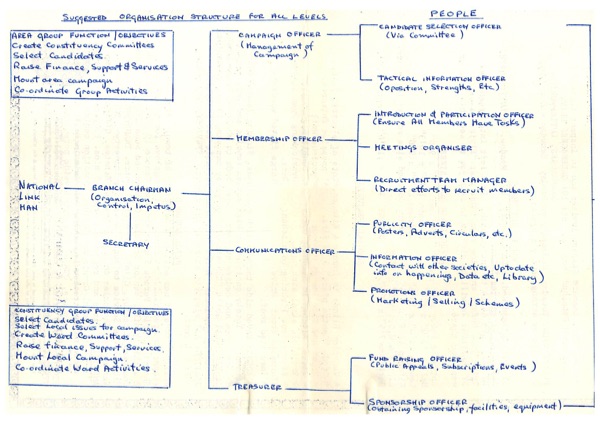 SUGGESTED ORGANISATION STRUCTURE FOR ALL LEVELS
PEOPLE
AREA GROUP FUNCTION / OBJECTIVES
Create Constituency Committees
Select Candidates.
Raise Finance, Support & Services
Mount area campaign
Co-ordinate Group Activities
CAMPAIGN OFFICER
(Management of
Campaign)
CANDIDATE SELECTION OFFICER
(Via Committee)
TACTICAL INFORMATION OFFICER
(Opostion, Strengths, Etc)
MEMBERSHIP OFFICER
INTRODUCTION & PARTICIPATION OFFICER
(Ensure All Members Have Tasks)
MEETINGS ORGANISER
RECRUITMENT TEAM MANAGER
(Direct efforts to recruit members)
NATIONAL
LINK
MAN
BRANCH CHAIRMAN
(Organisation,
Control, Impetus)
SECRETARY
COMMUNICATIONS OFFICER
PUBLICITY OFFICER
(Posters, Adverts, Circulars, etc.)
INFORMATION OFFICER
(Contact with other societies, Uptodate
info on happenings, Data etc, Library)
PROMOTIONS OFFICER
(Marketing / Selling / Schemes)
CONSTITUENCY GROUP FUNCTION / OBJECTIVES
Select Candidates.
Select Local issues for campaign.
Create Ward Committees.
Raise finance, Support, Services.
Mount Local Campaign
Co-ordinate Ward Activities.
TREASURER
FUND RAISING OFFICER
(Public Appeals, Subscriptions, Events)
SPONSORSHIP OFFICER
(Obtaining Sponsorship, facilities, equipment)